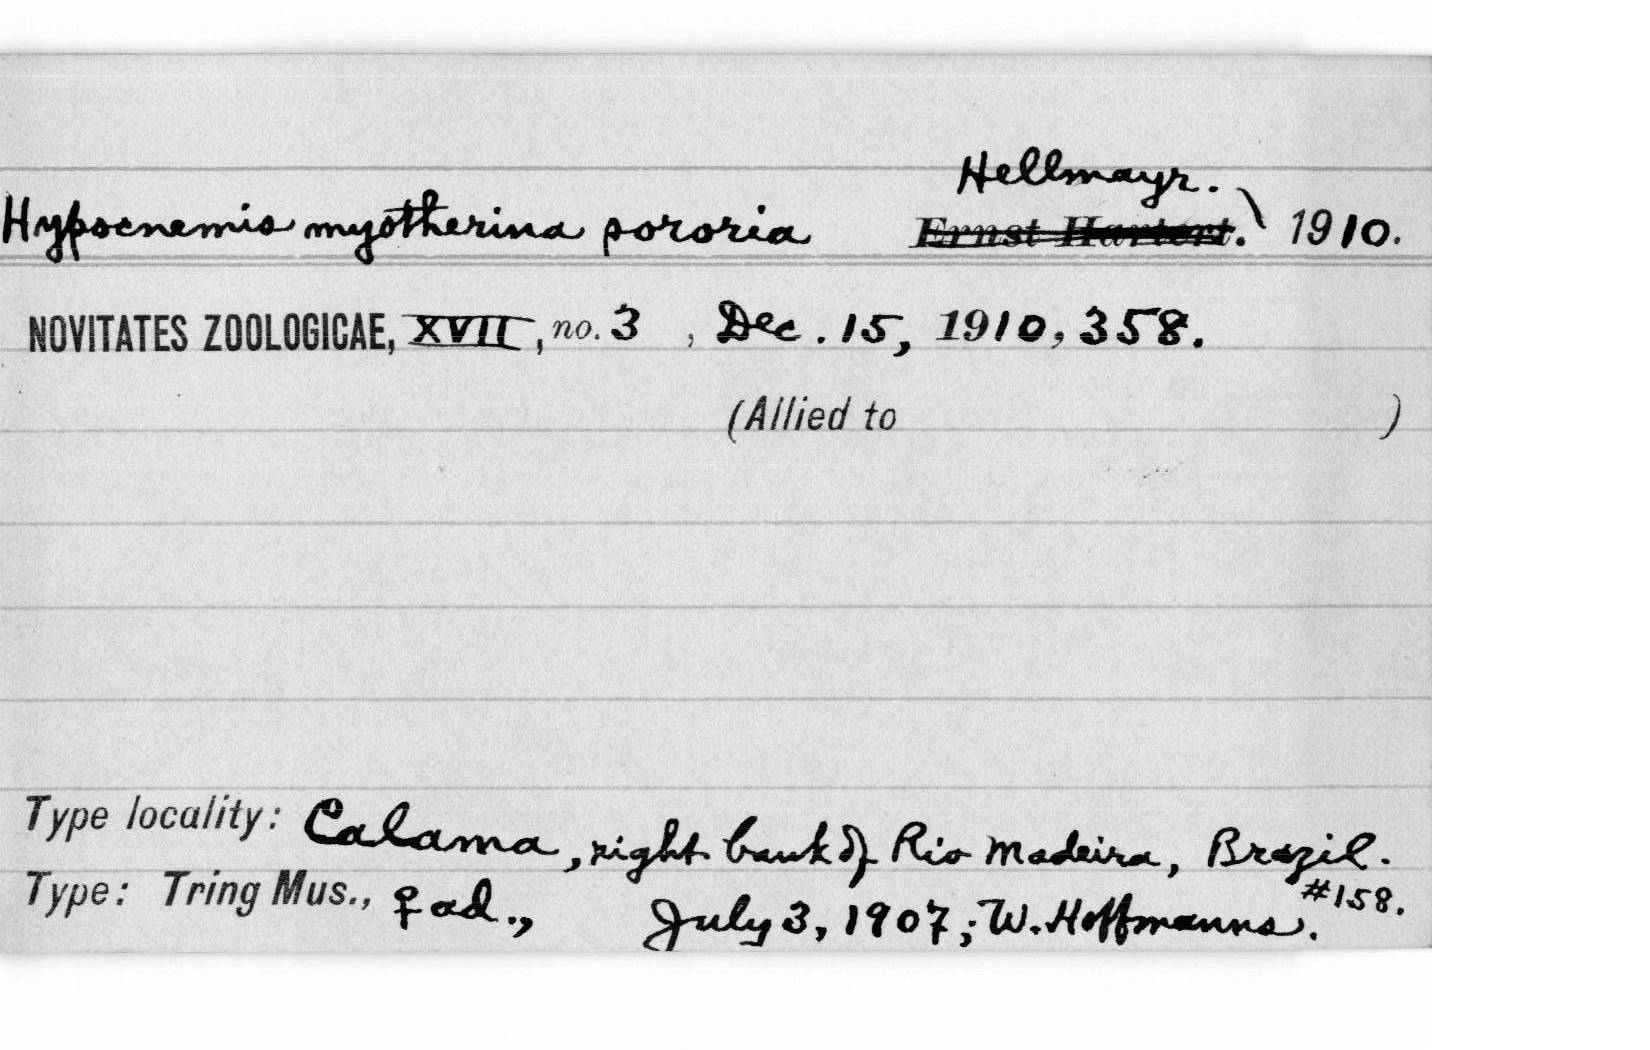 Hellmayr.
Hypocnemis myotherina sororia Ernst Hartert. 1910.
NOVITATES ZOOLOGICAE, XVII, no. 3, Dec. 15, 1910, 358.
(Allied to )
Type locality: Calama, right bank of Rio Madeira, Brazil.
Type: Tring Mus., ♀ ad., July 3, 1907; W. Hoffmanns. #158.